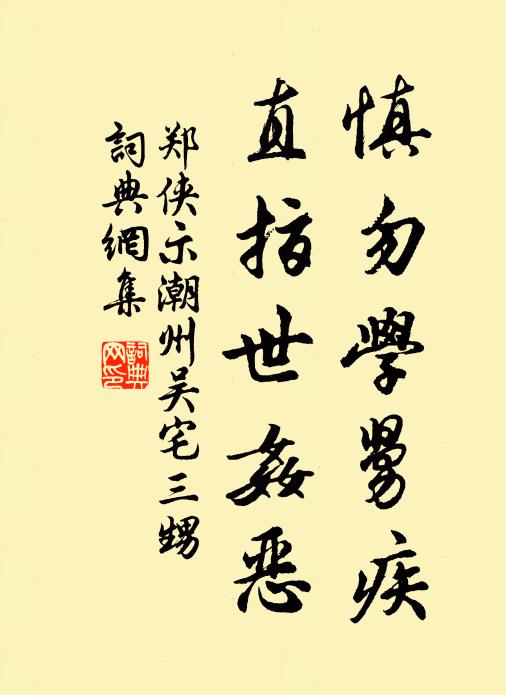 慎勿學舅疾
直指世姦恶
郑侠示潮州吴宅三甥
詞典網集
詞典
网印